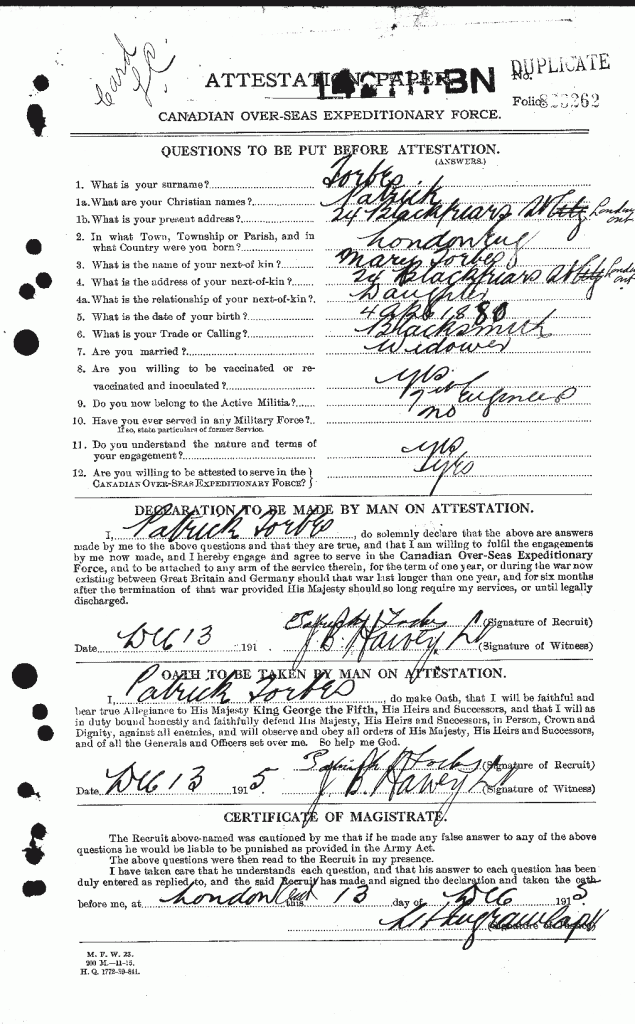 Card
L.C.
ATTESTATION PAPER. 142TH BN No. DUPLICATE
Folio. 262
CANADIAN OVER-SEAS EXPEDITIONARY FORCE.
QUESTIONS TO BE PUT BEFORE ATTESTATION.
(ANSWERS.)
1. What is your surname? Forbes
1a. What are your Christian names? Patrick
1b. What is your present address? 24 Blackfriars St City London Ont
2. In what Town, Township or Parish, and in
what Country were you born? London Eng
3. What is the name of your next-of kin? Mary Forbes
4. What is the address of your next-of-kin? 24 Blackfriars St City London Ont
4a. What is the relationship of your next-of-kin? Daughter
5. What is the date of your birth? 4 1880
6. What is your Trade or Calling? Blacksmith
7. Are you married? Widower
8. Are you willing to be vaccinated or re-
vaccinated and inoculated? yes
9. Do you now belong to the Active Militia? Engineers
10. Have you ever served in any Military Force? no
If so, state particulars of former Service.
11. Do you understand the nature and terms of
your engagement? yes
12. Are you willing to be attested to serve in the }
CANADIAN OVER-SEAS EXPEDITIONARY FORCE? } yes
DECLARATION TO BE MADE BY MAN ON ATTESTATION.
I, Patrick Forbes, do solemnly declare that the above are answers
made by me to the above questions and that they are true, and that I am willing to fulfil the engagements
by me now made, and I hereby engage and agree to serve in the Canadian Over-Seas Expeditionary
Force, and to be attached to any arm of the service therein, for the term of one year, or during the war now
existing between Great Britain and Germany should that war last longer than one year, and for six months
after the termination of that war provided His Majesty should so long require my services, or until legally
discharged.
(Signature of Recruit)
Date Dec 13 191 . J B Harvey Lt (Signature of Witness)
OATH TO BE TAKEN BY MAN ON ATTESTATION.
I, Patrick Forbes, do make Oath, that I will be faithful and
bear true Allegiance to His Majesty King George the Fifth, His Heirs and Successors, and that I will as
in duty bound honestly and faithfully defend His Majesty, His Heirs and Successors, in Person, Crown and
Dignity, against all enemies, and will observe and obey all orders of His Majesty, His Heirs and Successors,
and of all the Generals and Officers set over me. So help me God.
(Signature of Recruit)
Date Dec 13 1915 J B Harvey Lt (Signature of Witness)
CERTIFICATE OF MAGISTRATE.
The Recruit above-named was cautioned by me that if he made any false answer to any of the above
questions he would be liable to be punished as provided in the Army Act.
The above questions were then read to the Recruit in my presence.
I have taken care that he understands each question, and that his answer to each question has been
duly entered as replied to, and the said Recruit has made and signed the declaration and taken the oath
before me, at London Ont this 13 day of Dec 1915
(Signature of Justice)
M. F. W. 23.
200 M.—11-15.
H. Q. 1772-39-841.